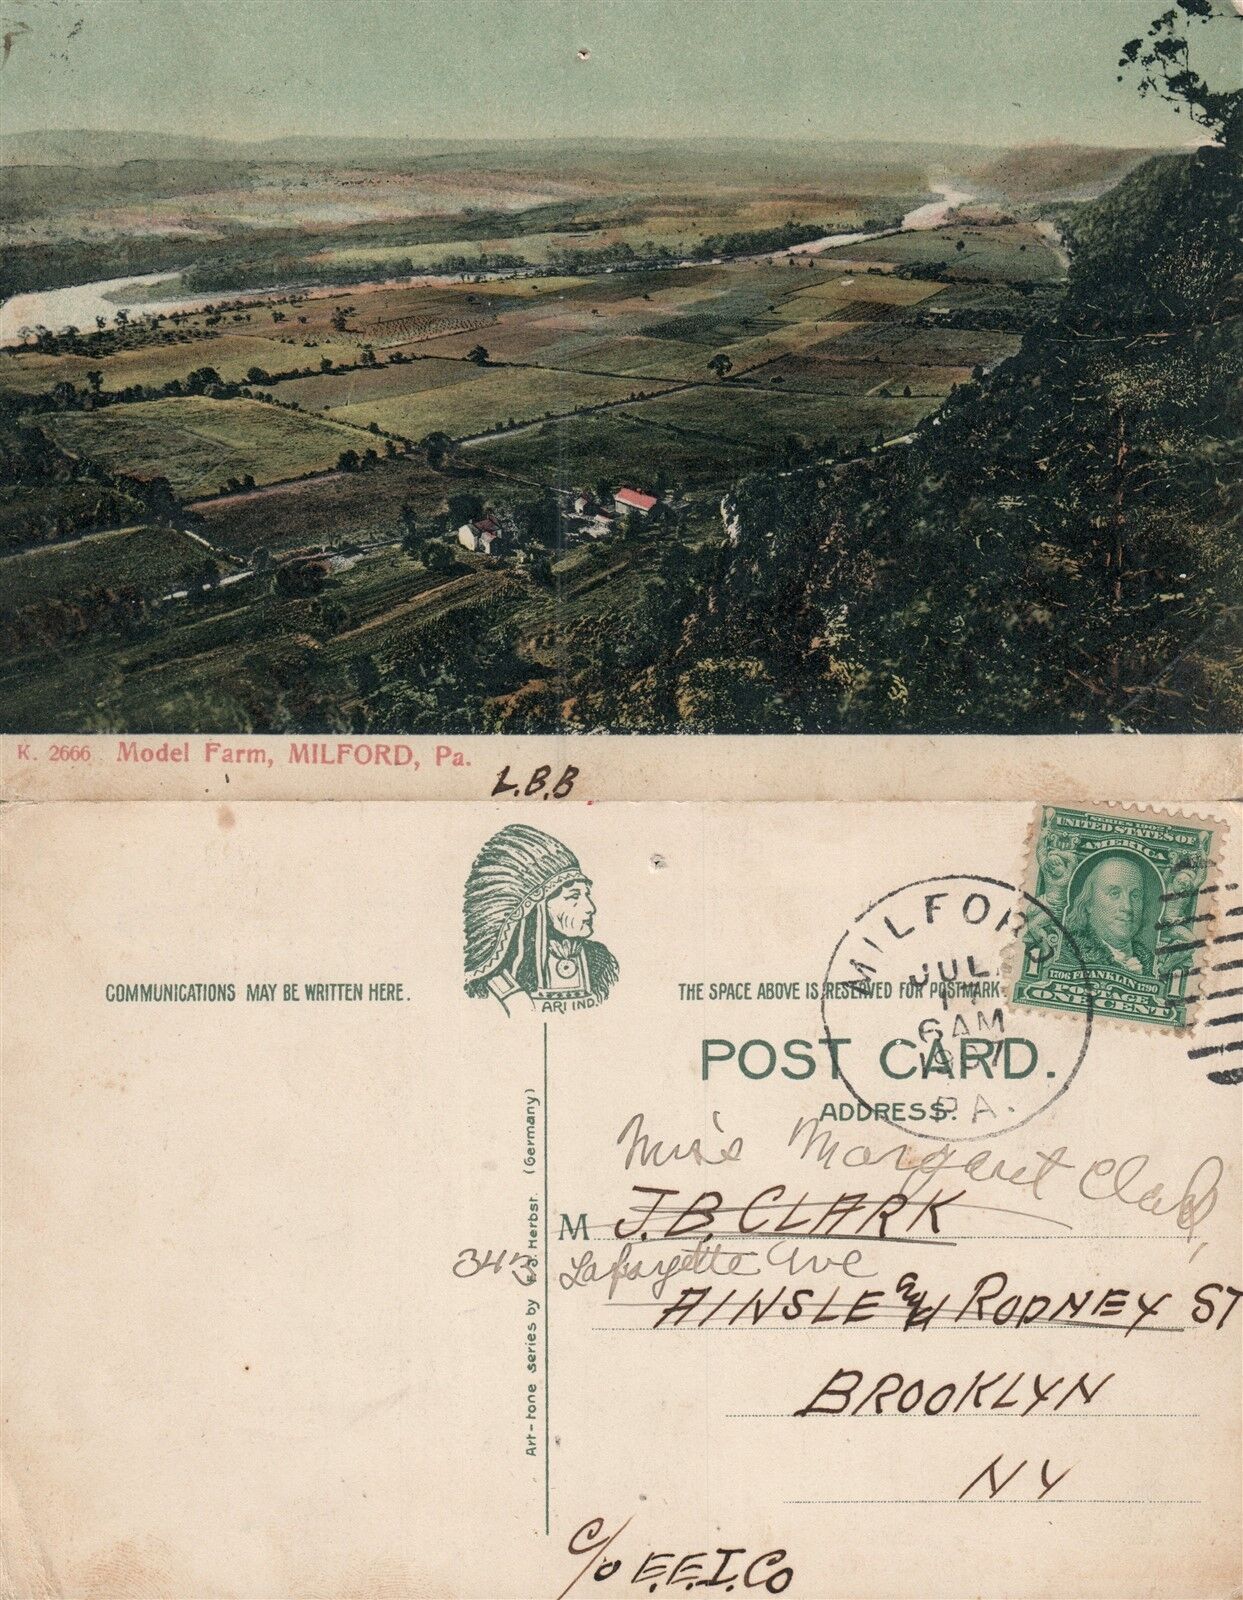 K. 2666 Model Farm, MILFORD, Pa.
L.B.B
COMMUNICATIONS MAY BE WRITTEN HERE.
ARI IND.
THE SPACE ABOVE IS RESERVED FOR POSTMARK
SERIES 1902
UNITED STATES OF
AMERICA
1706 FRANKLIN 1790
POSTAGE
ONE CENT
MILFORD
JUL
6AM
1907
PA.
POST CARD.
ADDRESS.
Miss Margaret Clark,
M J.B. CLARK
343 Lafayette Ave
AINSLE and RODNEY ST
BROOKLYN
NY
C/O E.E.I.Co
Art-tone series by J. Herbst. (Germany)